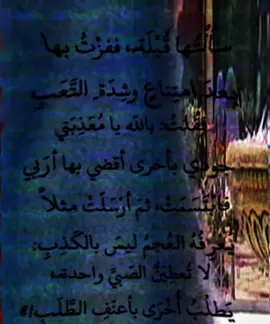 سألتُها قُبْلَةً، ففزْتُ بها
بعدَ امتِناعٍ وشِدّةِ التَّعَبِ
فقُلتُ: باللّه يا مُعَذِبَتي
جودي بأخرى أقضي بها أرَبي
فابْتَسَمَتْ، ثم أرْسَلَتْ مثلاً
يَعرِفُهُ العُجمُ ليسَ بالكَذِبِ:
لا تُعطِيَنَّ الصَبيَّ واحدةً،
يَطلُبُ أُخرَى بأعنَفِ الطَّلَبِ!!